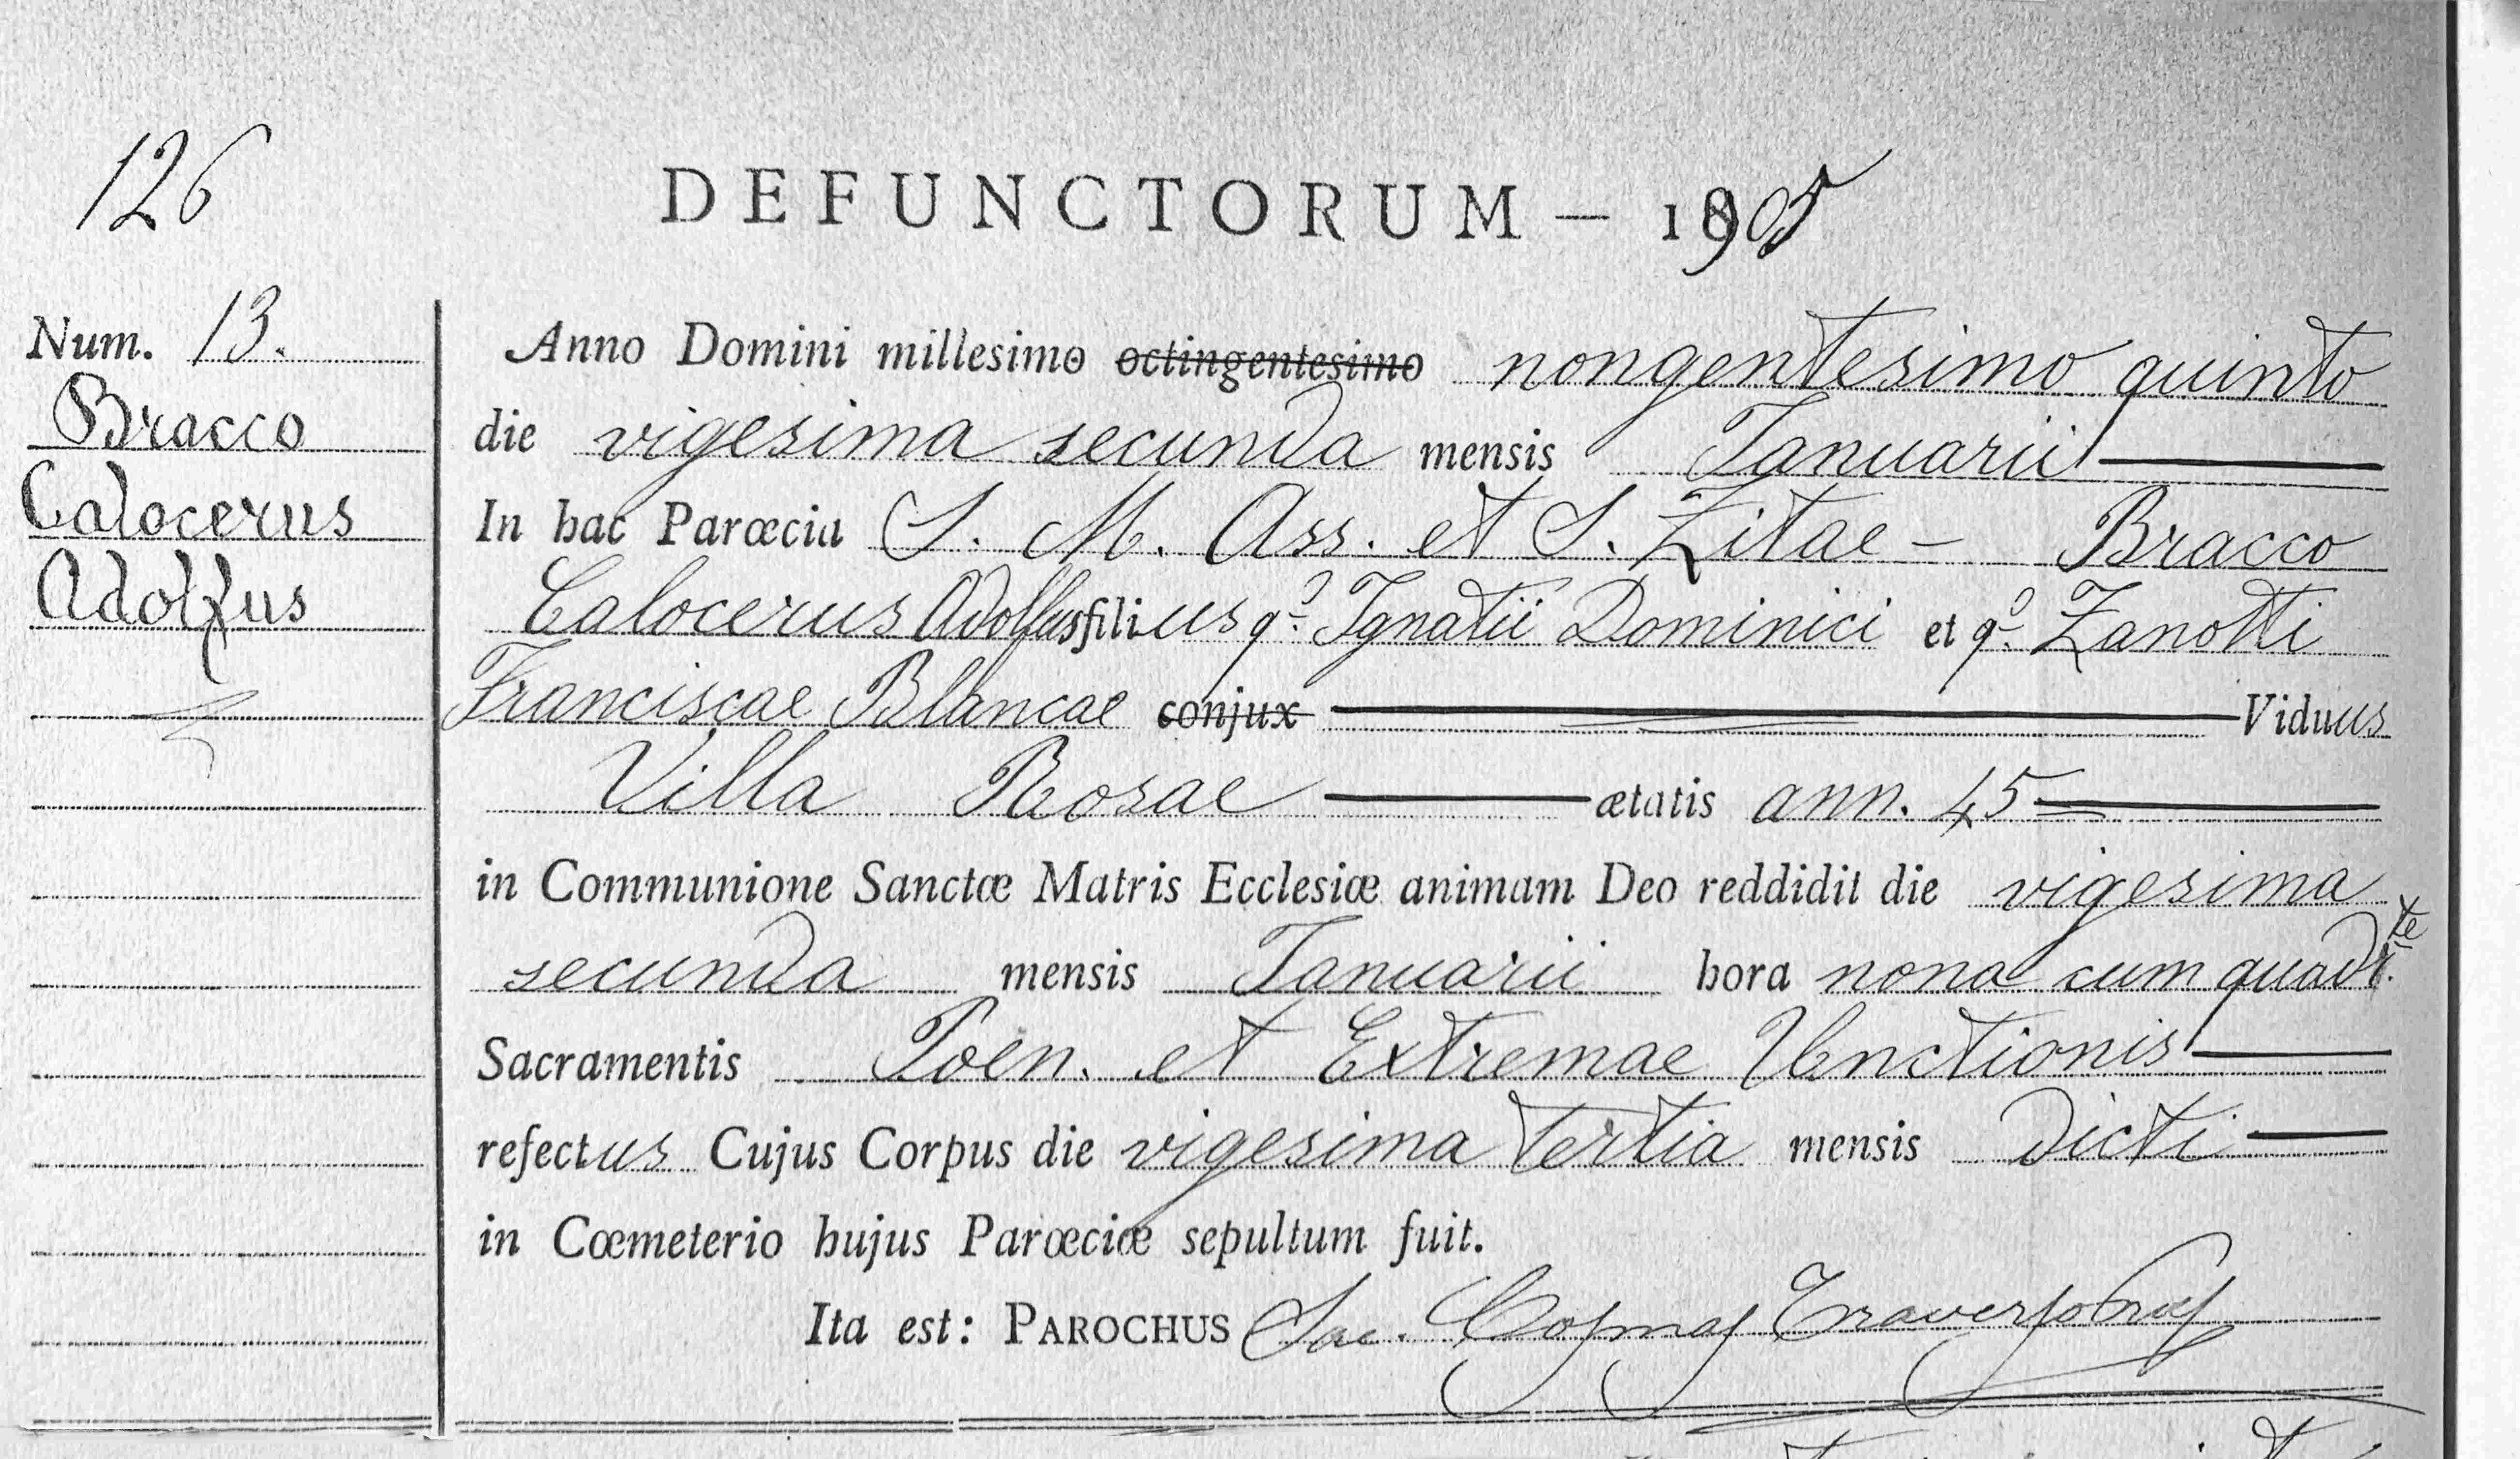 126
DEFUNCTORUM — 1905
Num. 13.
Bracco
Calocerus
Adolfus
Anno Domini millesimo octingentesimo nongentesimo quinto
die vigesima secunda mensis Ianuarii
In hac Parœcia S. M. Ass. et S. Zitae — Bracco
Calocerus Adolfus filius qᵐ Ignatii Dominici et qᵐ Zanotti
Franciscae Blancae conjux Viduus
Villa Rosae ætatis ann. 45
in Communione Sanctæ Matris Ecclesiæ animam Deo reddidit die vigesima
secunda mensis Ianuarii hora nona cum quadr.te
Sacramentis Poen. et Extremae Unctionis
refectus Cujus Corpus die vigesima tertia mensis dicti
in Cœmeterio hujus Parœciæ sepultum fuit.
Ita est: PAROCHUS Sac. Cosmas